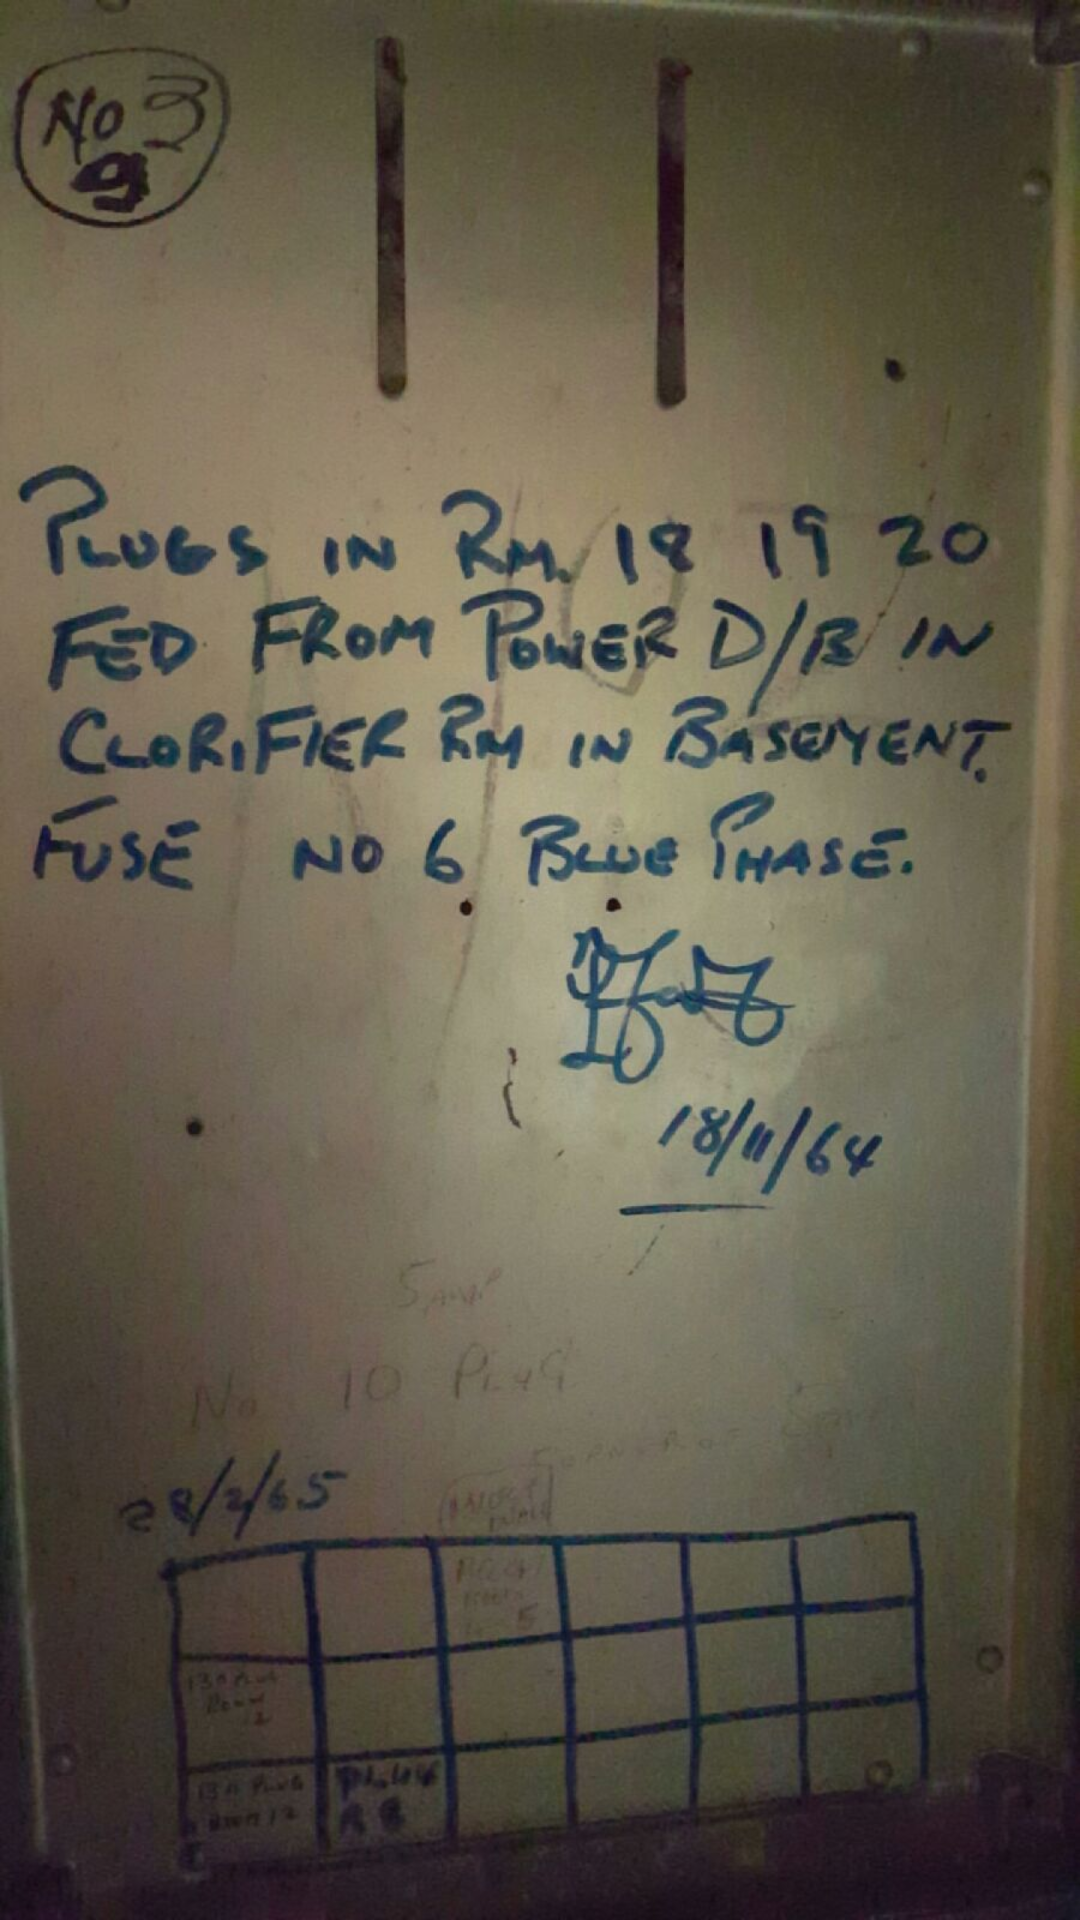 No 3
9
PLUGS IN RM. 18 19 20
FED FROM POWER D/B IN
CLORIFIER RM IN BASEMENT.
FUSE NO 6 BLUE PHASE.
18/11/64
5 AMP
No 10 PLUG
28/2/65
5
13A PLUG
ROOM
12
13A PLUG
ROOM 12